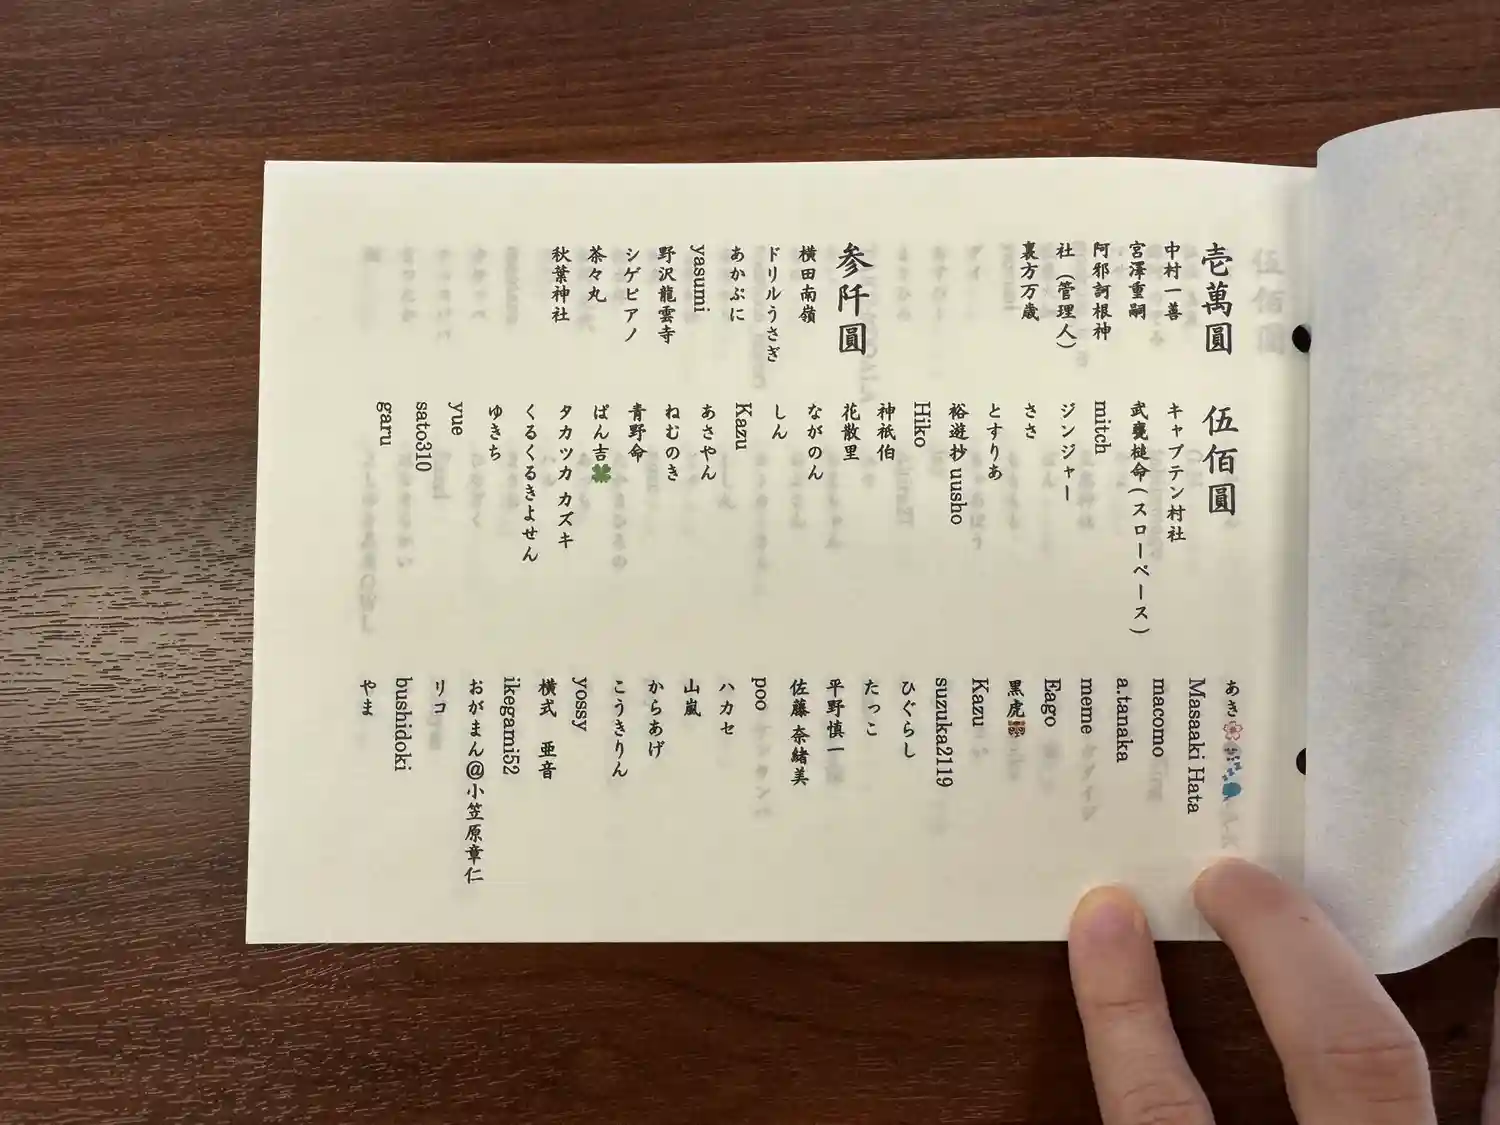 壱萬圓
中村一善
宮澤重嗣
阿邪訶根神
社（管理人）
裏方万歳
参阡圓
横田南嶺
ドリルうさぎ
あかぷに
yasumi
野沢龍雲寺
シゲピアノ
茶々丸
秋葉神社
伍佰圓
キャプテン村社
武甕槌命(スローペース)
mitch
ジンジャー
ささ
とすりあ
裕遊抄 uusho
Hiko
神祇伯
花散里
ながのん
しん
Kazu
あさやん
ねむのき
青野命
ぱん吉🍀
タカツカ カズキ
くるくるきよせん
ゆきち
yue
sato310
garu
あき🌸
Masaaki Hata
macomo
a.tanaka
meme
Eago
黒虎
Kazu
suzuka2119
ひぐらし
たっこ
平野慎一
佐藤 奈緒美
poo
ハカセ
山嵐
からあげ
こうきりん
yossy
横式　亜音
ikegami52
おがまん@小笠原章仁
リコ
bushidoki
やま